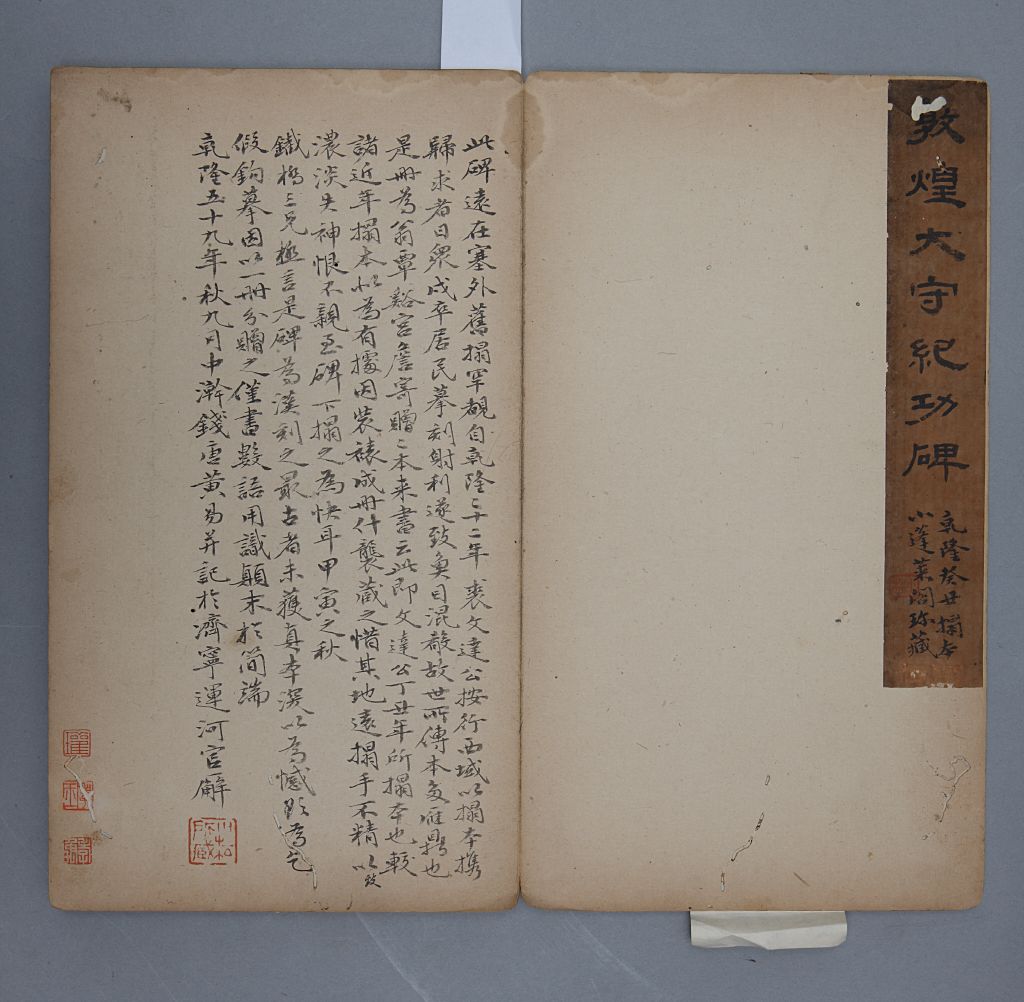 敦煌太守紀功碑
乾隆癸丑搨本
小蓬萊閣珍藏
此碑遠在塞外舊搨罕覩自乾隆二十二年裘文達公按行西域以搨本携
歸求者日眾戍卒居民摹刻射利遂致魚目混殽故世所傳本多贗鼎也
是冊為翁覃谿宮詹寄贈二本来書云此即文達公丁丑年所搨本也較
諸近年搨本以為有據因裝褾成冊什襲藏之惜其地遠搨手不精以致
濃淡失神恨不親至碑下搨之為快耳甲寅之秋
鐵橋三兄極言是碑為漢刻之最古者未獲真本深以為憾頻為乞
假鉤摹因以一冊分贈之僅書數語用識顛末於簡端
乾隆五十九年秋九月中澣錢唐黃易并記於濟寧運河官廨